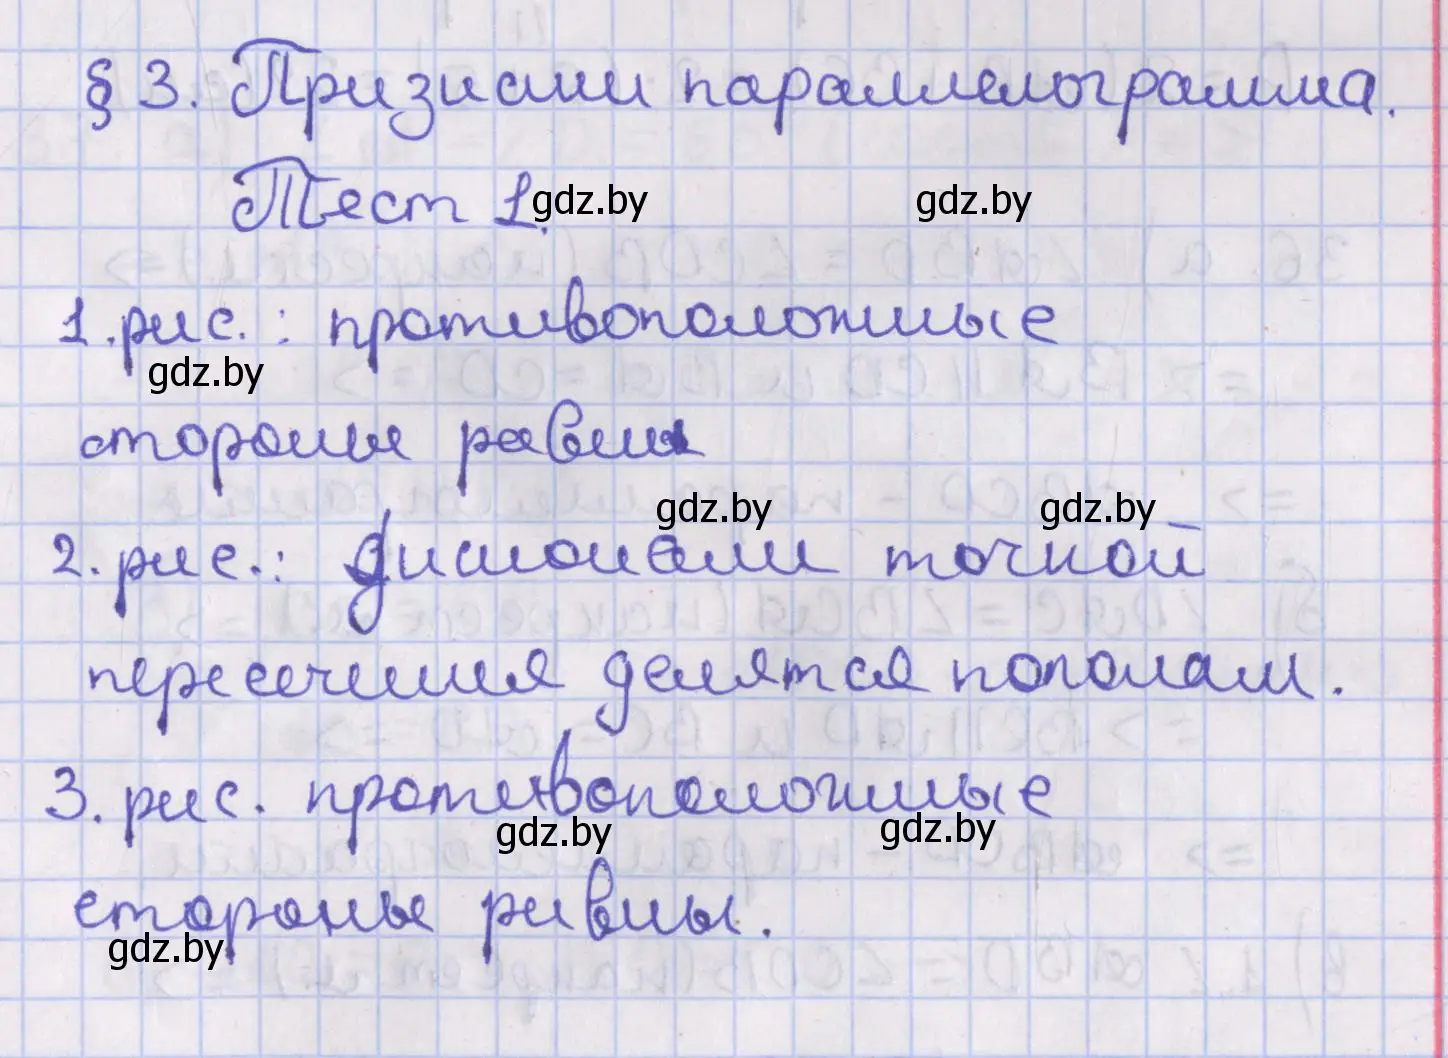 § 3. Признаки параллелограмма.
Тест 1.
gdz.by gdz.by
1. рис.: противоположные
gdz.by
стороны равны
gdz.by gdz.by
2. рис.: диагонали точкой
пересечения делятся пополам.
3. рис. противоположные
gdz.by gdz.by
стороны равны.
gdz.by